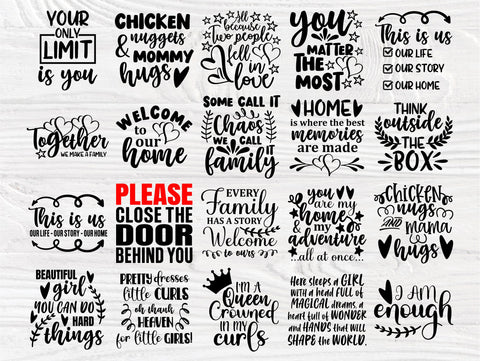 YOUR
ONLY
LIMIT
is you
CHICKEN
nuggets
& MOMMY
hugs
All
because
Two people
fell
in love
you
MATTER
THE
MOST
This is us
OUR LIFE
OUR STORY
OUR HOME
Together
WE MAKE A FAMILY
WELCOME
to our
home
SOME CALL IT
Chaos
WE CALL IT
family
HOME
is where the best
memories
are made
THINK
outside
THE
BOX
This is us
OUR LIFE · OUR STORY · OUR HOME
PLEASE
CLOSE THE
DOOR
BEHIND YOU
EVERY
Family
HAS A STORY
Welcome
to ours
you
are my
home
& my
adventure
...all at once...
chicken
nugs
AND mama
hugs
BEAUTIFUL
girl
YOU CAN DO
HARD
things
PRETTY dresses
little CURLS
oh thank
HEAVEN
for little GIRLS!
I'M A
Queen
CROWNED
IN MY
curls
Here sleeps a GIRL
with a head FULL of
MAGICAL dreams, a
heart full of WONDER
and HANDS that will
SHAPE the WORLD.
I AM
enough